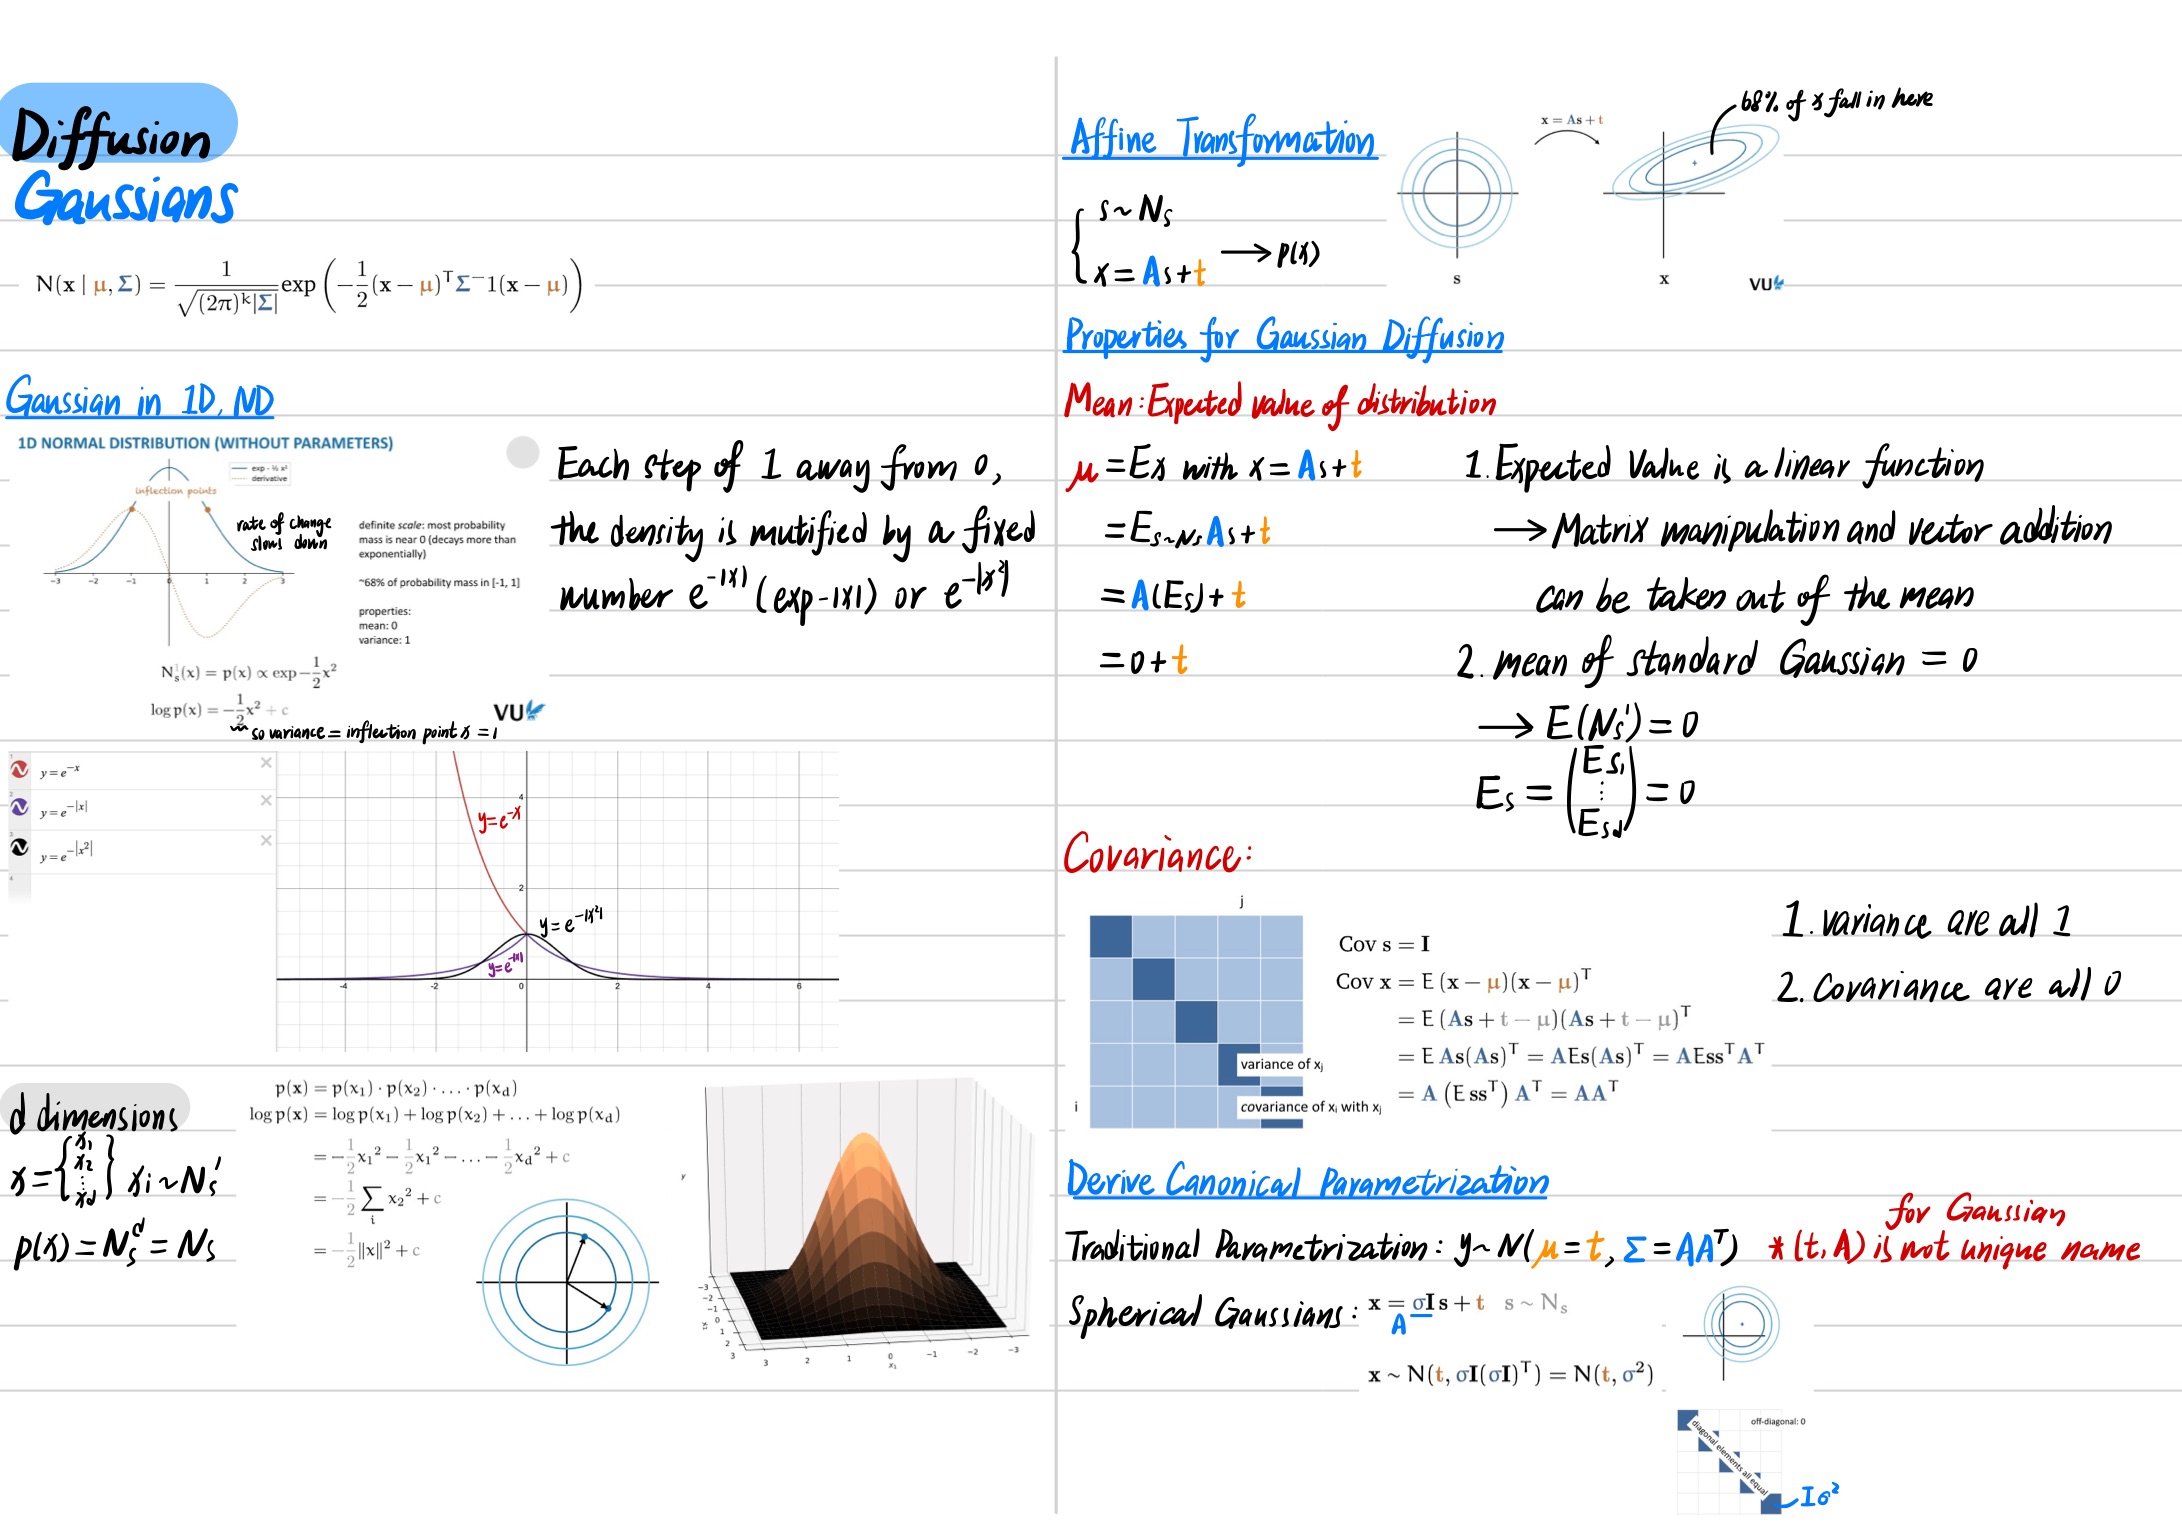 Diffusion
Gaussians
N(x | μ, Σ) = 1 / √((2π)^k|Σ|) exp (−1/2 (x − μ)^T Σ^−1(x − μ))
Gaussian in 1D, ND
1D NORMAL DISTRIBUTION (WITHOUT PARAMETERS)
exp - ½ x²
derivative
inflection points
rate of change
slows down
−3 −2 −1 0 1 2 3
definite scale: most probability
mass is near 0 (decays more than
exponentially)
~68% of probability mass in [-1, 1]
properties:
mean: 0
variance: 1
N_s^1(x) = p(x) ∝ exp −1/2 x²
log p(x) = −1/2 x² + c
VU
so variance = inflection point x = 1
Each step of 1 away from 0,
the density is mutified by a fixed
number e^-|x| (exp-|x|) or e^-|x²|
1
y = e^−x
2
y = e^−|x|
3
y = e^−|x²|
4
y=e^-x
y=e^-|x²|
y=e^-|x|
4
2
-4 -2 0 2 4 6
d dimensions
x = {x1 x2 ⋮ xd} xi ~ N_s^1
p(x) = N_s^d = Ns
p(x) = p(x1) · p(x2) · … · p(xd)
log p(x) = log p(x1) + log p(x2) + … + log p(xd)
= −1/2 x1² − 1/2 x1² − … − 1/2 xd² + c
= −1/2 ∑i x2² + c
= −1/2 ‖x‖² + c
y
−3 −2 −1 0 1 2 3
3 2 1 0 −1 −2 −3
x1
Affine Transformation
s ~ Ns
x = As + t → p(x)
x = As + t
68% of x fall in here
s
x
VU
Properties for Gaussian Diffusion
Mean: Expected value of distribution
μ = Ex with x = As + t
= E s~Ns As + t
= A(Es) + t
= 0 + t
1. Expected Value is a linear function
→ Matrix manipulation and vector addition
can be taken out of the mean
2. mean of standard Gaussian = 0
→ E(Ns¹) = 0
Es = (Es1 ⋮ Esd) = 0
Covariance:
j
i
variance of xj
covariance of xi with xj
Cov s = I
Cov x = E (x − μ)(x − μ)^T
= E (As + t − μ)(As + t − μ)^T
= E As(As)^T = AEs(As)^T = AEss^T A^T
= A (E ss^T) A^T = AA^T
1. variance are all 1
2. Covariance are all 0
Derive Canonical Parametrization
Traditional Parametrization: y ~ N(μ = t, Σ = AA^T)
for Gaussian
* (t, A) is not unique name
Spherical Gaussians: x = σIs + t s ~ Ns
A
x ~ N(t, σI(σI)^T) = N(t, σ²)
off-diagonal: 0
diagonal elements all equal
Iσ²